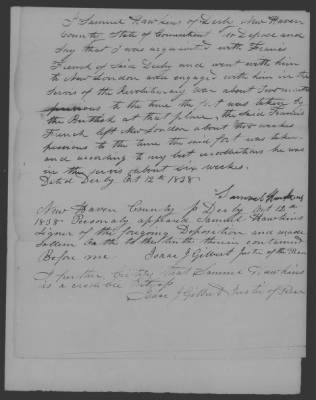 I Samuel Hawkins of Derby New Haven
County State of Connecticut Do Depose and
Say that I was arquanted with Francis
French of Said Derby and went with him
to New London and engaged with him in the
Servis of the Revolutionary War about Two months
previous to the time the fort was taken by
the Brittish at that place, the Said Francis
French left New London about two weeks
previous to the time the said fort was taken
and according to my best recollections he was
in the servis about six weeks.
Dated Derby Oct 12th 1838
Samuel Hawkins
New Haven County ss Derby Oct 12th
1838 Personaly appeared Samuel Hawkins
Signer of the foregoing Deposition and made
Solemn Oath to the truth therein contained
Before me Isaac J Gilbert Justice of the Peace
I further Certify that Samuel Hawkins
is a credable
Isaac J Gilbert Justice of Peace